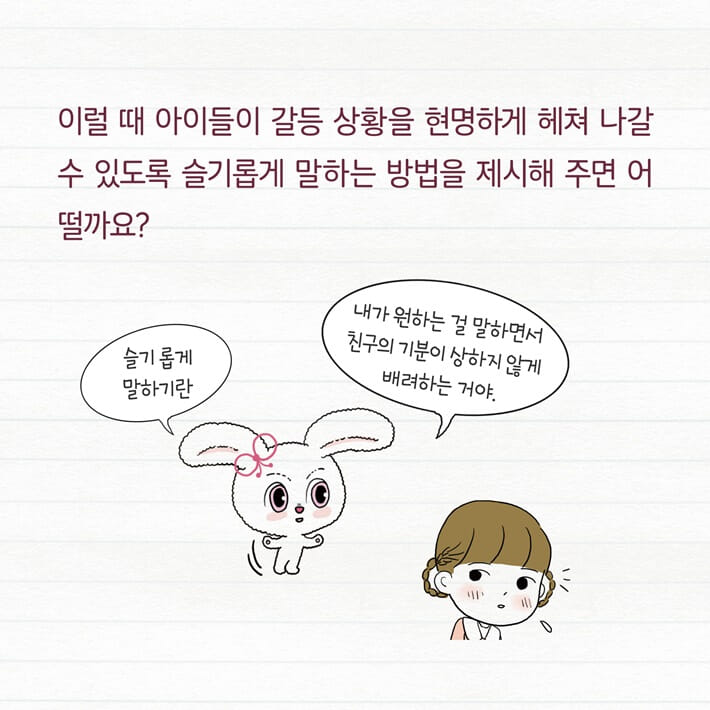 이럴 때 아이들이 갈등 상황을 현명하게 헤쳐 나갈
수 있도록 슬기롭게 말하는 방법을 제시해 주면 어
떨까요?
슬기 롭게
말하기란
내가 원하는 걸 말하면서
친구의 기분이 상하지 않게
배려하는 거야.